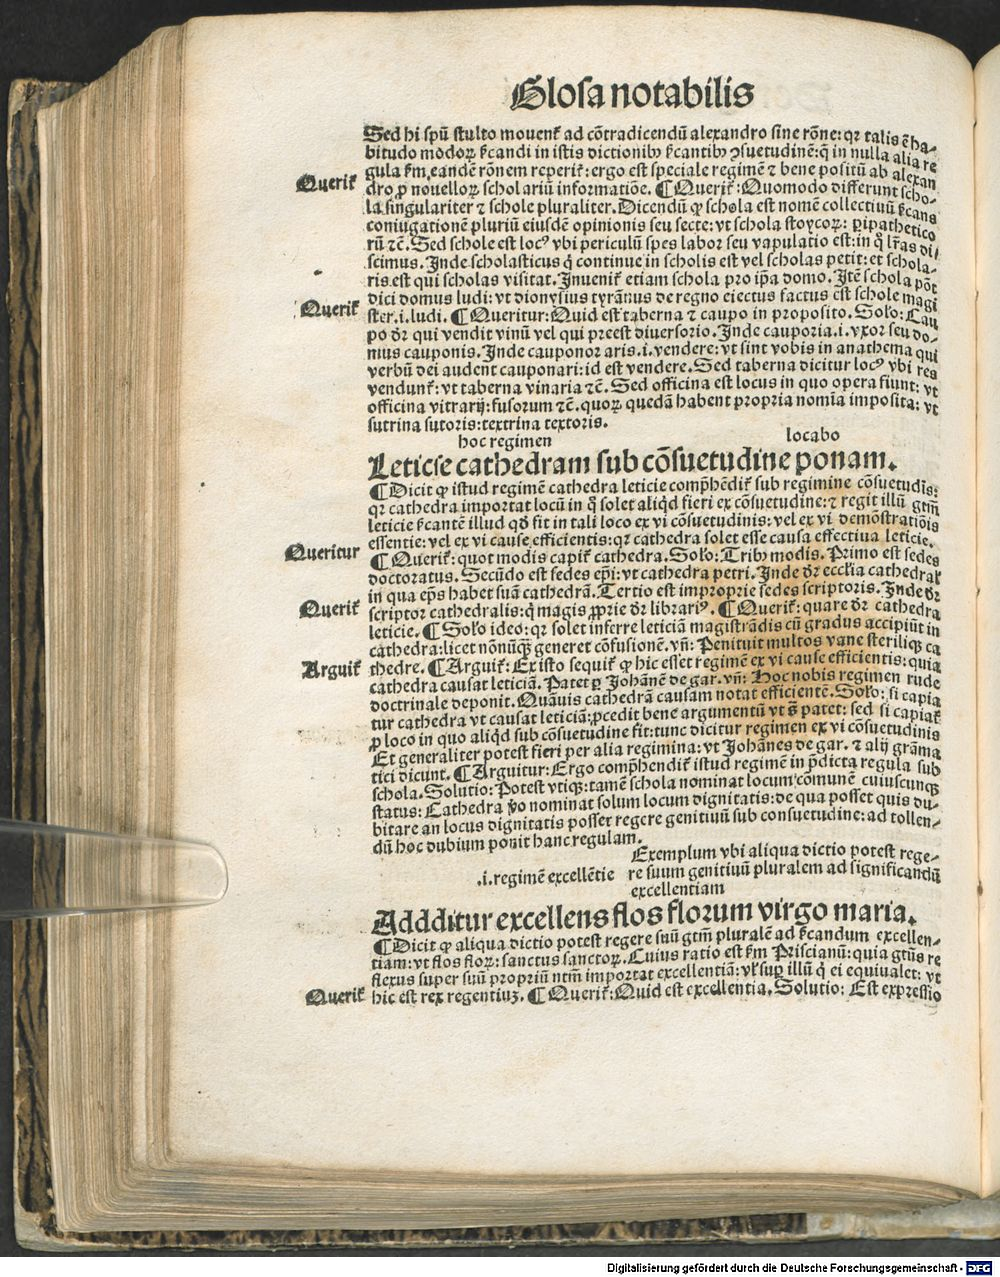 Glosa notabilis
Sed hi spũ stulto mouenť ad cõtradicendũ alexandro sine rõne: qꝛ talis ẽ ha-
bitudo modoꝝ ẜcandi in istis dictionibꝰ ẜcantibꝰ ꝯsuetudinẽ: q̃ in nulla alia re
gula ẜm eandẽ rõnem reperiť: ergo est speciale regimẽ ⁊ bene positũ ab alexan
Queriť
dro ꝓ nouelloꝝ scholariũ informatiõe. ¶ Queriť: Quomodo differunt scho-
la singulariter ⁊ schole pluraliter. Dicendũ ꝙ schola est nomẽ collectiuũ ẜcans
coniugationẽ pluriũ eiusdẽ opinionis seu secte: vt schola stoycoꝝ: ꝑipathetico
rũ ⁊c̃. Sed schole est locꝰ vbi periculũ spes labor seu vapulatio est: in q̊ lr̃as di
scimus. Inde scholasticus q̇ continue in scholis est vel scholas petit: et schola-
ris est qui scholas visitat. Inueniť etiam schola pro ip̃a domo. Itẽ schola põt
dici domus ludi: vt dionysius tyrãnus de regno eiectus factus est schole magi
Queriť
ster .i. ludi. ¶ Queritur: Quid est taberna ⁊ caupo in proposito. Solo: Cau
po dr̃ qui vendit vinũ vel qui preest diuersorio. Inde cauporia .i. vxor seu do-
mus cauponis. Inde cauponor aris .i. vendere: vt sint vobis in anathema qui
verbũ dei audent cauponari: id est vendere. Sed taberna dicitur locꝰ vbi res
vendunť: vt taberna vinaria ⁊c̃. Sed officina est locus in quo opera fiunt: vt
officina vitrarij: fusorum ⁊c̃. quoꝝ quedã habent propria nomina imposita: vt
sutrina sutoris: textrina textoris.
hoc regimen locabo
Leticie cathedram sub cõsuetudine ponam.
¶ Dicit ꝙ istud regimẽ cathedra leticie comp̃hẽdiť sub regimine cõsuetudĩs:
qꝛ cathedra importat locũ in q̊ solet aliq̇d fieri ex cõsuetudine: ⁊ regit illũ gtm̃
leticie ẜcantẽ illud qd̃ fit in tali loco ex vi cõsuetudinis: vel ex vi demõstratiõis
essentie: vel ex vi cause efficientis: qꝛ cathedra solet esse causa effectiua leticie.
Queritur
¶ Queriť: quot modis capiť cathedra. Solo: Tribꝰ modis. Primo est sedes
doctoratus. Secũdo est sedes ep̃i: vt cathedra petri. Inde dr̃ ecclĩa cathedral̃
in qua ep̃s habet suã cathedrã. Tertio est improprie sedes scriptoris. Inde dr̃
Queriť
scriptor cathedralis: q̇ magis ꝓprie dr̃ librariꝰ. ¶ Queriť: quare dr̃ cathedra
leticie. ¶ Solo ideo: qꝛ solet inferre leticiã magistrãdis cũ gradus accipiũt in
cathedra: licet nõnũqꝫ generet cõfusionẽ. vñ: Penituit multos vane steriliqꝫ ca
Arguiť
thedre. ¶ Arguiť: Ex isto sequiť ꝙ hic esset regimẽ ex vi cause efficientis: quia
cathedra causat leticiã. Patet ꝑ Johãnẽ de gar. vñ: Hoc nobis regimen rude
doctrinale deponit. Quãuis cathedrã causam notat efficientẽ. Solo: si capia
tur cathedra vt causat leticiã: ꝓcedit bene argumentũ vt s̃ patet: sed si capiať
ꝓ loco in quo aliq̇d sub cõsuetudine fit: tunc dicitur regimen ex vi cõsuetudinis
Et generaliter potest fieri per alia regimina: vt Johãnes de gar. ⁊ alij grãma
tici dicunt. ¶ Arguitur: Ergo comp̃hendiť istud regimẽ in p̃dicta regula sub
schola. Solutio: Potest vtiqꝫ: tamẽ schola nominat locum cõmunẽ cuiuscunqꝫ
status: Cathedra ṽo nominat solum locum dignitatis: de qua posset quis du-
bitare an locus dignitatis posset regere genitiuũ sub consuetudine: ad tollen-
dũ hoc dubium ponit hanc regulam.
Exemplum vbi aliqua dictio potest rege-
.i. regimẽ excellẽtie re suum genitiuũ pluralem ad significandũ
excellentiam
Addditur excellens flos florum virgo maria.
¶ Dicit ꝙ aliqua dictio potest regere suũ gtm̃ pluralẽ ad ẜcandum excellen-
tiam: vt flos floꝝ: sanctus sanctoꝝ. Cuius ratio est ẜm Priscianũ: quia gtũs re
flexus super suũ propriũ ntm̃ importat excellentiã: vl̃ suꝑ illũ q̇ ei equiualet: vt
Queriť
hic est rex regentiuꝫ. ¶ Queriť: Quid est excellentia. Solutio: Est expressio
Digitalisierung gefördert durch die Deutsche Forschungsgemeinschaft - DFG